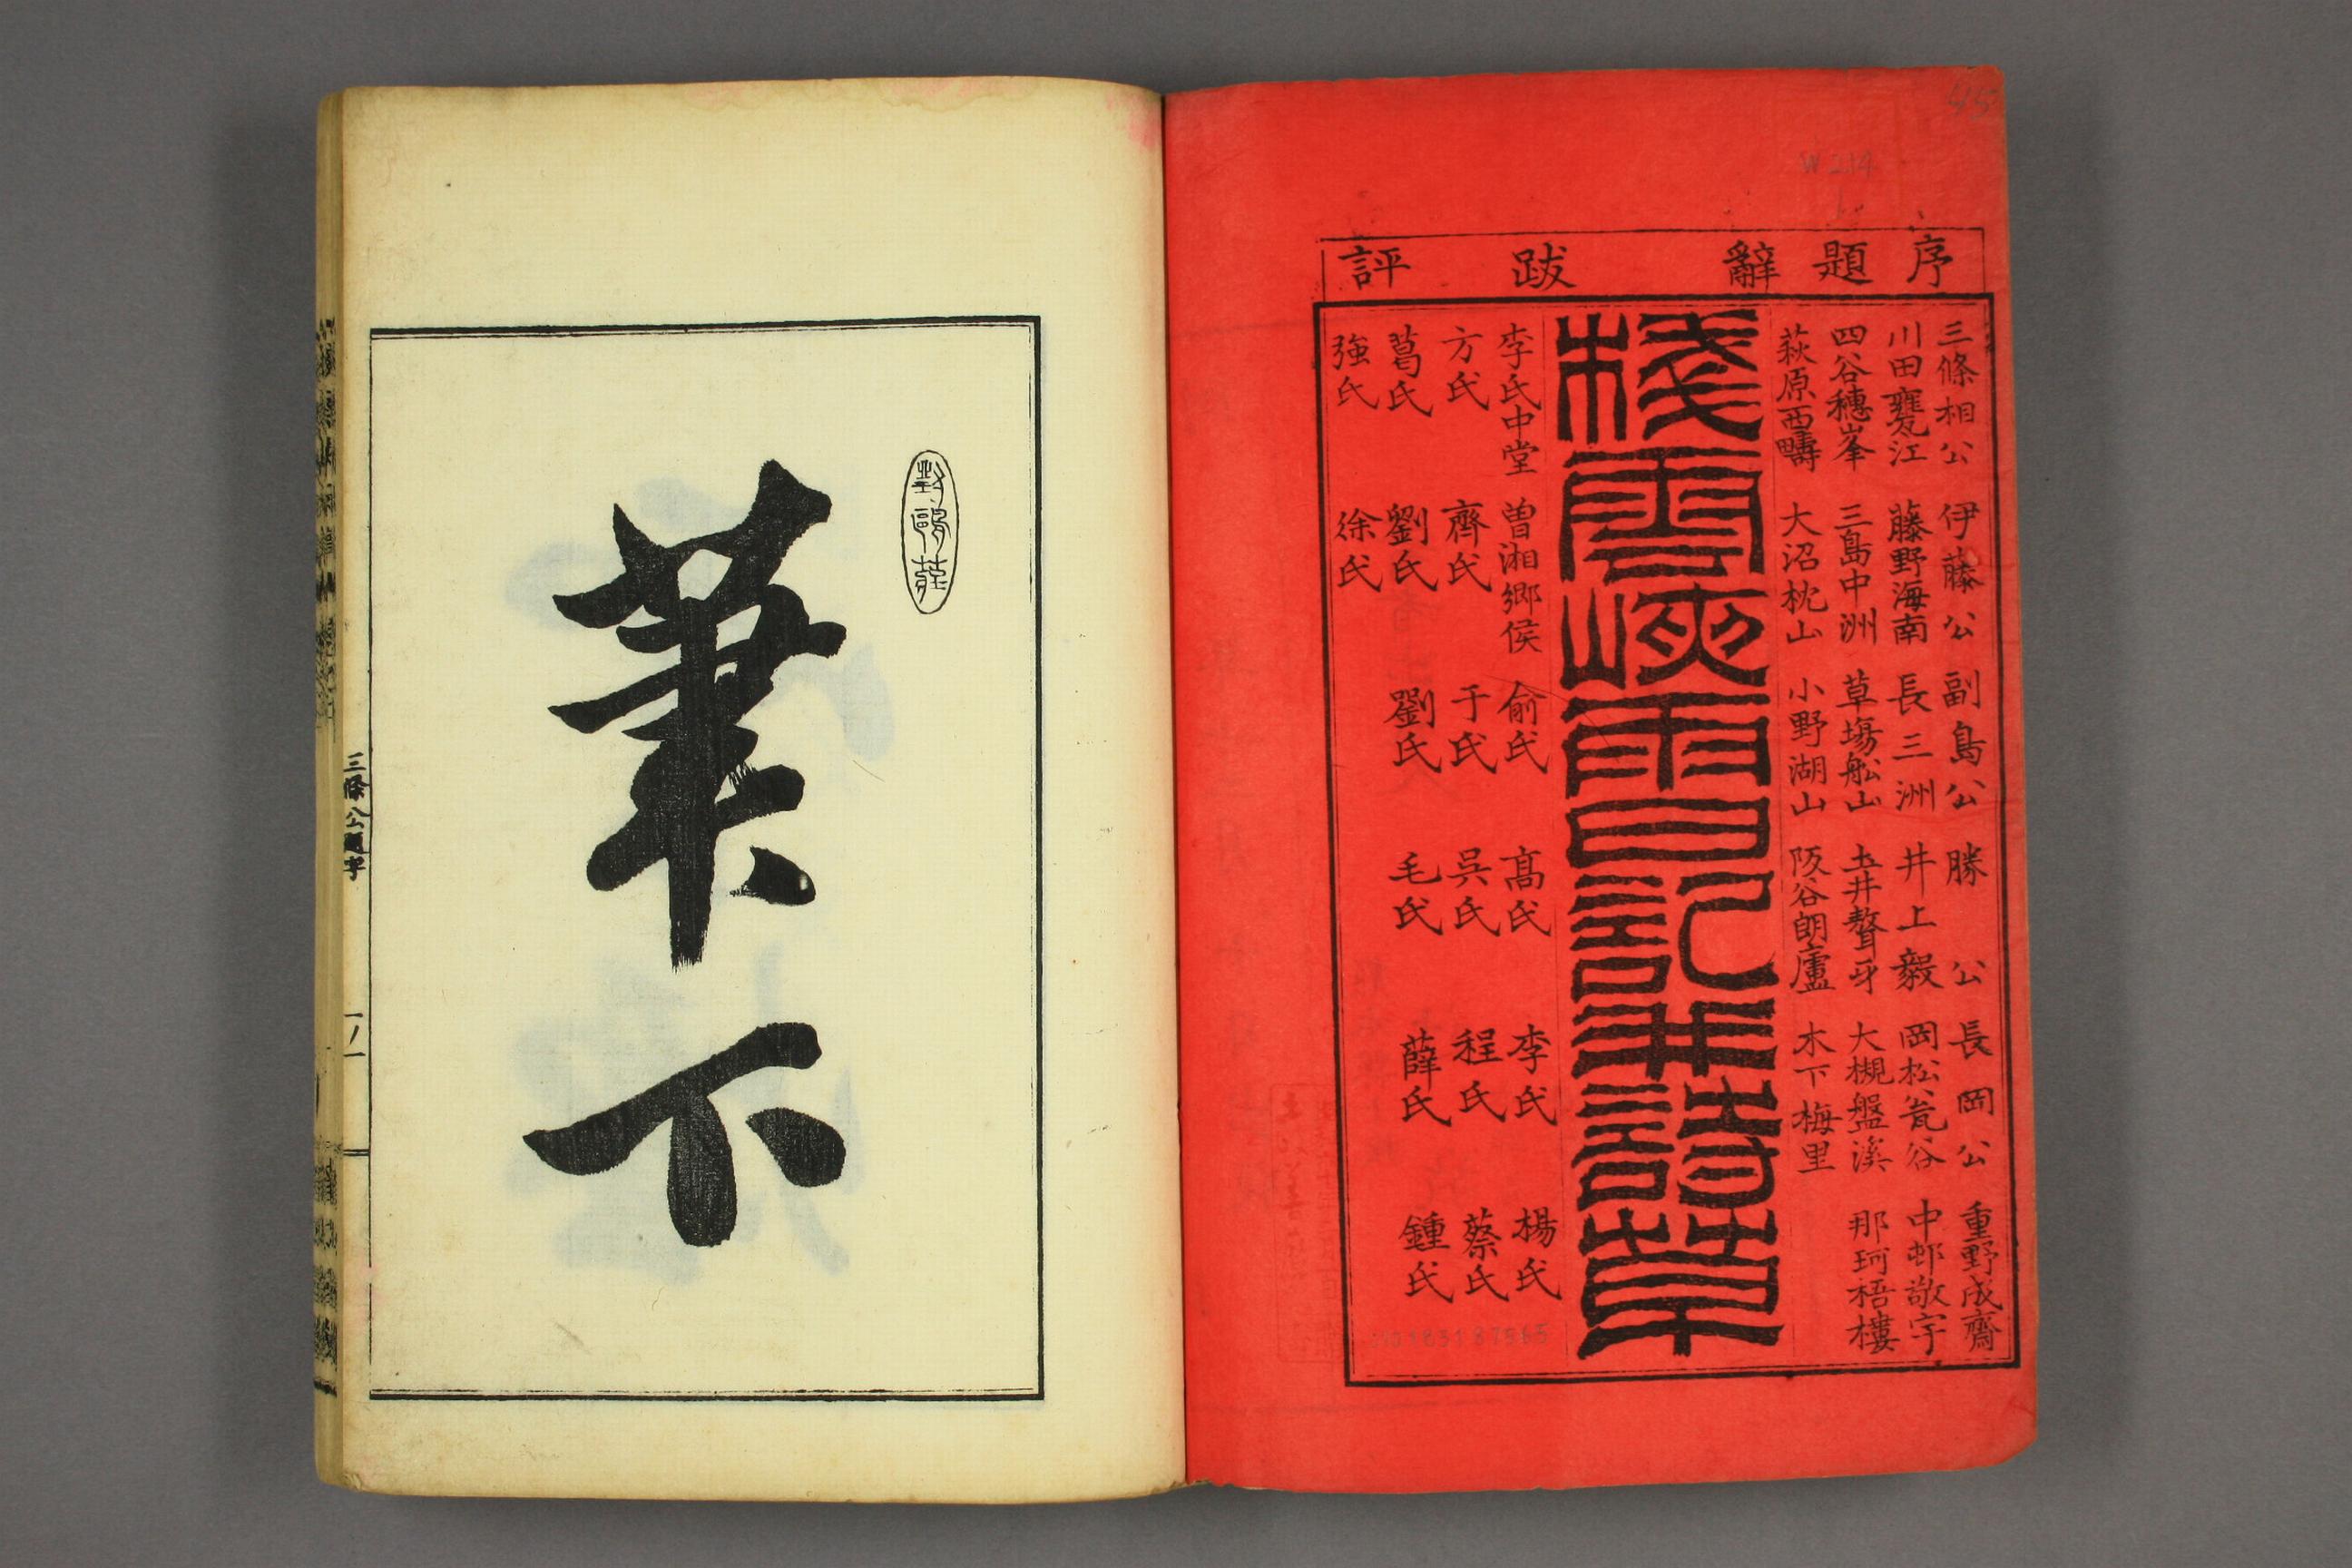 45
W214
序題辭 跋 評
三條相公 伊藤公 副島公 勝公 長岡公 重野成齋
川田甕江 藤野海南 長三洲 井上毅 岡松瓮谷 中邨敬宇
四谷穗峯 三島中洲 草場船山 土井聱牙 大槻盤溪 那珂梧樓
萩原西疇 大沼枕山 小野湖山 阪谷朗廬 木下梅里
棧雲峽雨日記並詩草
李氏中堂 曾湘鄉侯 俞氏 髙氏 李氏 楊氏
方氏 齊氏 于氏 吳氏 程氏 蔡氏
葛氏 劉氏 劉氏 毛氏 薛氏 鍾氏
強氏 徐氏
對鷗莊
筆下
三條公題字
一ノ一